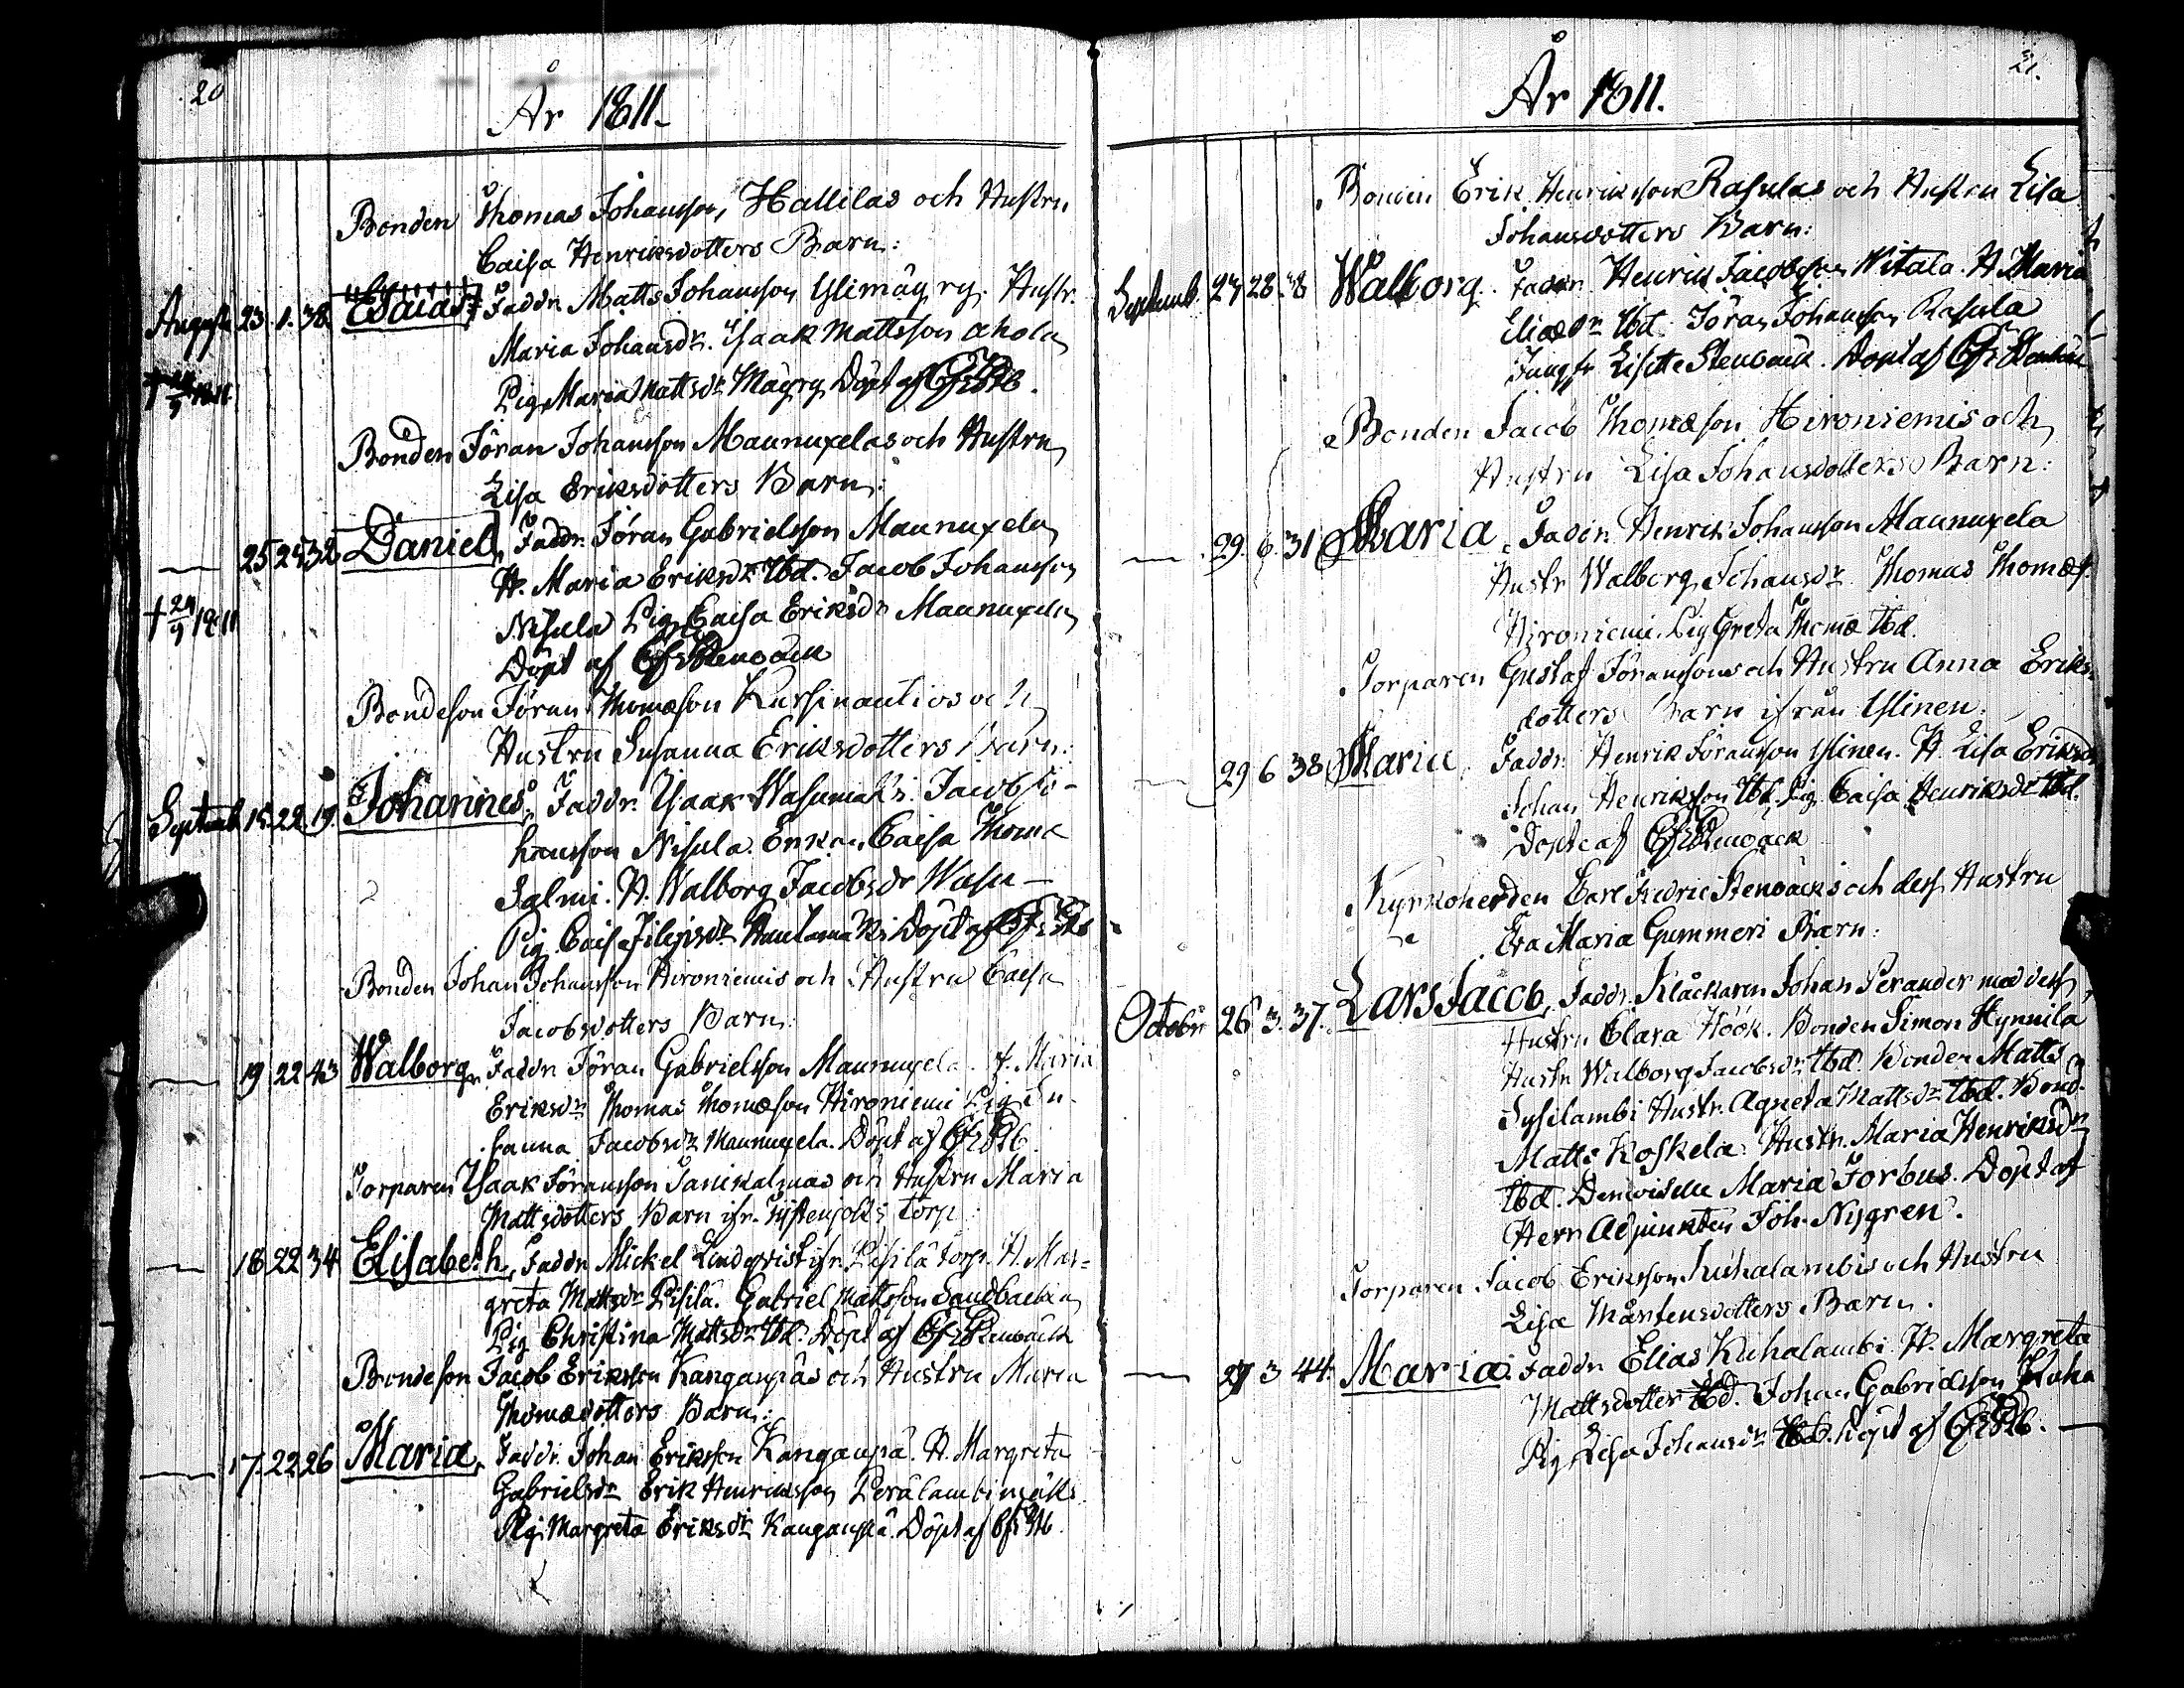 20
År 1811.
Bonden Thomas Johansson Hallilas och Hustru
Caisa Henriksdotters Barn:
August 23. 1. 38 Esaias, Faddr. Matts Johansson Ylimäyry. Hustr.
Maria Johansdr. Isaak Mattsson Ahola
Pig. Maria Mattsdr Mäyry Döpt af CFrStb.
Bonden Jöran Johansson Maunuxelas och Hustru
Lisa Eriksdotters Barn:
25 25 32 Daniel, Faddr. Jöran Gabrielsson Maunuxela
H. Maria Eriksdr Ibd. Jacob Johansson
† 24/9 1811 Nisula Pig. Caisa Eriksdr Maunuxela
Döpt af CFrStenbäck
Bondeson Jöran Thomæson Kursinautios och
Hustru Susanna Eriksdotters Barn:
Septemb. 15. 22. 19. Johannes, Faddr. Isaak Wasumäki. Jacob Jo-
hansson Nisula. Enkan Caisa Thomæ
Salmi. H. Walborg Jacobsdr Wasu-
Pig. Caisa Filipsdr Hautamäki Döpt af CFrStb
Bonden Johan Johansson Hironiemis och Hustru Caisa
Jacobsdotters Barn:
19 22 43 Walborg, Faddr. Jöran Gabrielsson Maunuxela. H. Maria
Eriksdr. Thomas Thomæson Hironiemi Pig. Su-
sanna Jacobsdr Maunuxela. Döpt af CFrStb.
Torparen Isaak Jöransson och Hustru Maria
Mattsdotters Barn ifr. Torp
18 22 34 Elisabeth, Faddr. Mickel Lindqvist ifr. Pisilä torp. H. Mar-
greta Mattsdr Pisilä. Gabriel Mattsson Sandbacka
Pig Christina Mattsdr Ibd. Döpt af CFrStenbäck
Bondeson Jacob Eriksson Kangaspäs och Hustru Maria
Thomædotters Barn:
17. 22 26 Maria, Faddr. Johan Eriksson Kangaspä. H. Margreta
Gabrielsdr Erik Henriksson Perälambi
Pig. Margreta Eriksdr Kangaspä. Döpt af CFrStb.
21.
År 1811.
Bonden Erik Henriksson Rasulas och Hustru Lisa
Johansdotters Barn:
Septemb. 27 28 Walborg. Faddr. Henrik Jacobsson Nitala. H. Maria
Eliædr Ibd. Jöran Johansson Rasula
Jungfr Lisette Stenbäck. Döpt af CFrStenbäck
Bonden Jacob Thomæson Hironiemis och
Hustru Lisa Johansdotters Barn:
29. 6. 31 Maria, Faddr. Henrik Johansson Maunuxela
Hustr Walborg Johansdr. Thomas Thomæs.
Hironiemi. Pig Greta Thomæ Ibd.
Torparen Gustaf Jöranssons och Hustru Anna Eriks-
dotters Barn ifrån Ylinen:
29 6 38 Maria, Faddr. Henrik Jöransson Ylinen. H. Lisa Eriksdr
Johan Henriksson Ibd. Pig. Caisa Henriksdr Ibd.
Döpt af CFrStenbäck
Kyrkoherden Carl Fredric Stenbäcks och dess Hustru
Eva Maria Gummeri Barn:
October 26 3. 37. Lars Jacob, Faddr. Klåckaren Johan Perander med dess
Hustru Clara Höök. Bonden Simon Hynnilä
Hustr Walborg Jacobsdr Ibd. Bonden Matts
Sysilambi Hustr. Agneta Mattsdr Ibd. Bond.
Matts Koskela Hustr. Maria Henriksdr
Ibd. Demoiselle Maria Forbus. Döpt af
Herr Adjunkten Joh. Nygren.
Torparen Jacob Eriksson Kuhalambis och Hustru
Lisa Mårtensdotters Barn.
27 3 44. Maria. Faddr. Elias Kuhalambi. H. Margreta
Mattsdotter Ibd. Johan Gabrielsson Kuha
Pig. Lisa Johansdr Ibd. Döpt af CFrStb.